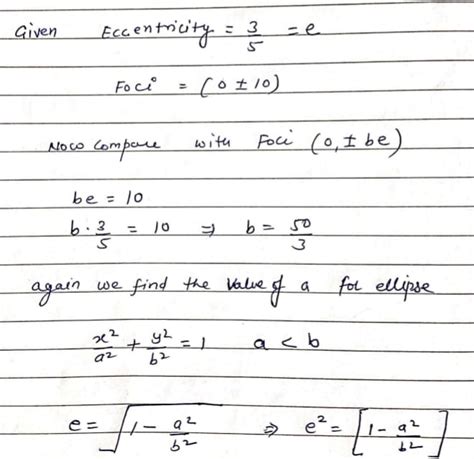 Given Eccentricity = 3/5 = e
Foci = (0 ± 10)
Now Compare with Foci (0, ± be)
be = 10
b · 3/5 = 10 ⇒ b = 50/3
again we find the value of a for ellipse
x²/a² + y²/b² = 1 a < b
e = √(1 - a²/b²) ⇒ e² = [1 - a²/b²]